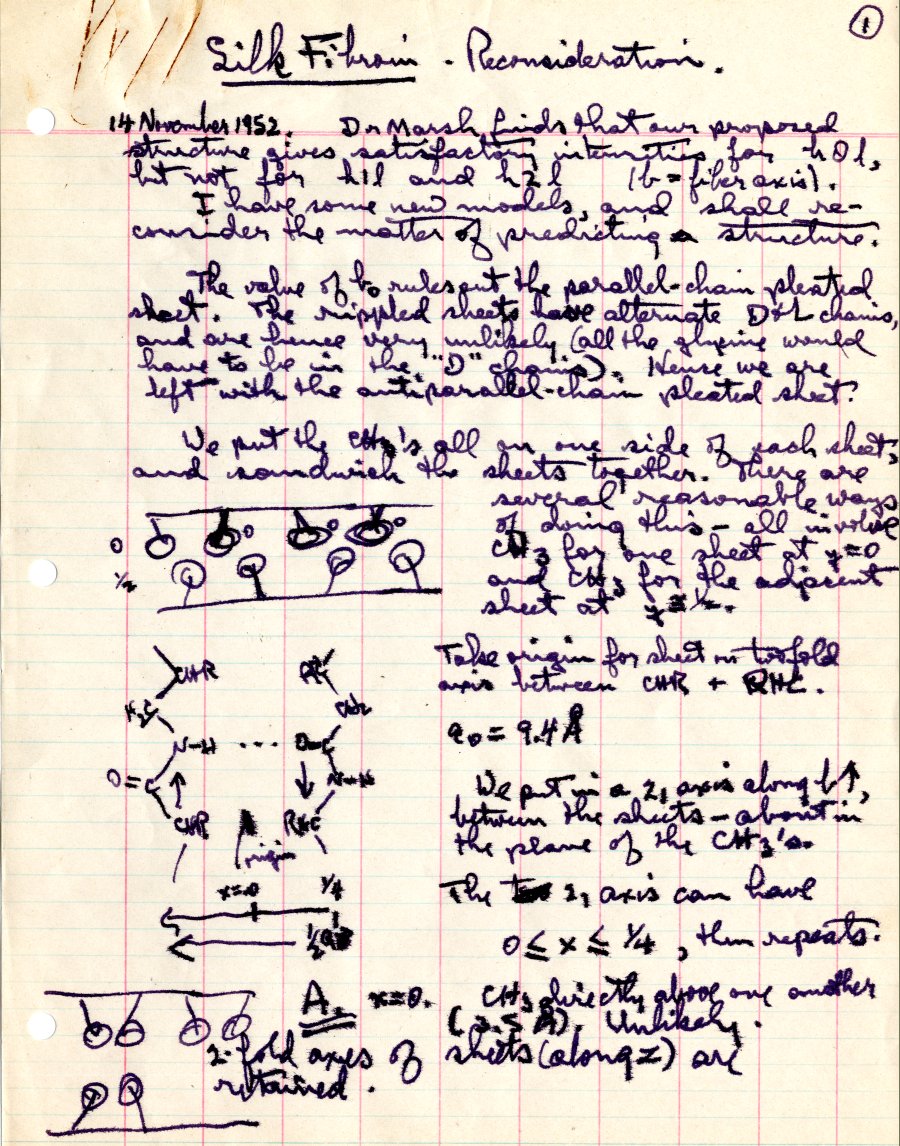 1
Silk Fibroin - Reconsideration.
14 November 1952. Dr Marsh finds that our proposed
structure gives satisfactory intensities for h0l,
but not for h1l and h2l (b = fiber axis).
I have some new models, and shall re-
consider the matter of predicting a structure.
The value of b₀ rules out the parallel-chain pleated
sheet. The rippled sheets have alternate D+L chains,
and are hence very unlikely (all the glycine would
have to be in the "D" chains). Hence we are
left with the antiparallel-chain pleated sheet.
We put the CH₃'s all on one side of each sheet,
and sandwich the sheets together. There are
several reasonable ways
of doing this - all involve
CH₃ for one sheet at y=0
and CH₃ for the adjacent
sheet at y = ½.
0 0 0 0
½
Take origin for sheet on twofold
axis between CHR + RHC.
CHR
H₂C CH₂
N-H ... O=C
O=C N-H
CHR RHC
origin
a₀ = 9.4 Å
We put in a 2₁ axis along b↑,
between the sheets - about in
the plane of the CH₃'s.
x=0 ¼
½
The 2₁ axis can have
0 ≤ x ≤ ¼, then repeats.
A. x=0. CH₃ directly above one another
(3.5 Å). Unlikely.
2-fold axes of sheets (along z) are
retained.